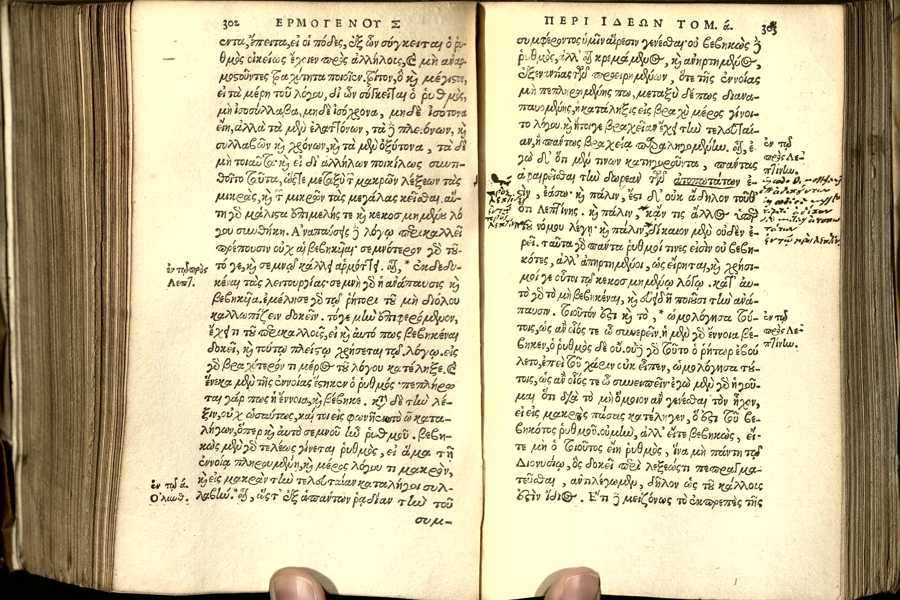 302 ΕΡΜΟΓΕΝΟΥΣ
ἔπειτα, εἰ οἱ πόδες, ἐξ ὧν σύγκεινται ὁ ῥυ-
θμὸς οἰκείως ἔχοιεν πρὸς ἀλλήλοις, καὶ μὴ ἀναρ-
μοστοῦντες ταχύτητα ποιοῖεν. τρίτον, ὃ καὶ μέγιστον,
εἰ τὰ μέρη τοῦ λόγου, δι' ὧν σύγκειται ὁ ῥυθμὸς,
μὴ ἰσοσύλλαβα, μηδὲ ἰσόχρονα, μηδὲ ἰσότονα
εἴη, ἀλλὰ τὰ μὲν ἐλαττόνων, τὰ δὲ πλειόνων, καὶ
συλλαβῶν καὶ χρόνων, καὶ τὰ μὲν ὀξύτονα, τὰ δὲ
μὴ τοιαῦτα. καὶ εἰ δι' ἀλλήλων ποικίλως συντι-
θοῖντο ταῦτα, ὥστε μεταξὺ τῶν μακρῶν λέξεων τὰς
μικρὰς, καὶ τῶν μικρῶν τὰς μεγάλας κεῖσθαι. αὕ-
τη γὰρ μάλιστα ἐπιμελής τε καὶ κεκοσμημένως λό-
γου συνθήκη. Ἀναπαύσης δὲ λόγῳ περικαλλεῖ
πρέπουσιν οὐχ αἱ βεβηκυῖαι· σεμνότερον γὰρ τοῦ-
τό γε, καὶ σεμνῷ κάλλει ἁρμόττει. οἷον, ἐκδεδυ-
κέναι τὰς λειτουργίας· σεμνὴ γὰρ ἡ ἀνάπαυσις καὶ
βεβηκυῖα. ἐμέλησε γὰρ τῷ ῥήτορι τοῦ μὴ διόλου
καλλωπίζειν δοκεῖν. τό γε μὴν ἐπιφερόμενον,
ἔχει τι τοῦ περικαλλοῦς, εἰ καὶ αὐτό πως βεβηκέναι
δοκεῖ, καὶ τούτῳ πλείστῳ χρήσεται τῷ λόγῳ. εἰς
γὰρ βραχύτερόν τι μέρος τοῦ λόγου κατέληξε. καὶ
ἕνεκα μὲν τῆς ἐννοίας ἔστηκεν ὁ ῥυθμός· πεπλήρω-
ται γάρ πως ἡ ἔννοια, καὶ βέβηκε. κατὰ δὲ τὴν λέ-
ξιν, οὐχ ὡσαύτως, καί τοι εἰς φωνῆεν τὸ ω κατα-
λήγων, ὅπερ καὶ αὐτὸ σεμνοῦ ἦν ῥυθμοῦ. βεβη-
κὼς μὲν γὰρ τελέως γίνεται ῥυθμὸς, εἰ ἅμα τῇ
ἐννοίᾳ πληρουμένῃ, καὶ μέρος λόγου τι μακρὸν,
καὶ εἰς μακρὰν τὴν τελευταίαν καταλήγοι συλ-
λαβήν. οἷον, ὥστ' ἐξ ἁπάντων ῥᾳδίαν τὴν τοῦ
συμ-
ἐν τῷ πρὸς
Λεπτ.
ἐν τῷ ά.
Ὀλυνθ.
ΠΕΡΙ ΙΔΕΩΝ ΤΟΜ. ά. 303
συμφέροντος ὑμῖν αἵρεσιν γενέσθαι· οὐ βεβηκὼς δὲ
ῥυθμὸς, ἀλλ' οἷον κρεμάμενος, καὶ ἀνηρτημένος,
ἐξ ἐναντίας τῶν προειρημένων, ὅτε τῆς ἐννοίας
μὴ πεπληρωμένης πω, μεταξὺ δέ πως διανα-
παυομένης, ἡ κατάληξις εἰς βραχὺ μέρος γίνοι-
το λόγου. καὶ ἤτοι γε βραχεῖαν ἔχει τὴν τελευταί-
αν, ἢ πάντως βραχεῖα παραληγομένην. οἷον, ἐ-
γὼ δ' ὅτι μὲν τινων κατηγοροῦντα, πάντας
ἀφαιρεῖσθαι τὴν δωρεὰν τῶν ἀτοπωτάτων ἐ-
στὶν, ἐάσω· καὶ πάλιν, ἔστι δ' οὐκ ἄδηλον τοῦθ'
ὅτι Λεπτίνης. καὶ πάλιν, κἄν τις ἄλλος ὑπὲρ
τοῦ νόμου λέγῃ· καὶ πάλιν, δίκαιον μὲν οὐδὲν ἐ-
ρεῖ. ταῦτα γὰρ πάντα ῥυθμοί τινες εἰσὶν οὐ βεβη-
κότες, ἀλλ' ἀπηρτημένοι, ὡς εἴρηται, καὶ χρήσι-
μοί γε οὗτοι τῷ κεκοσμημένῳ λόγῳ. κατ' αὐ-
τὸ γὰρ τὸ μὴ βεβηκέναι, καὶ οὐ ποιεῖσι τὴν ἀνά-
παυσιν. τοιοῦτόν ἐστι καὶ τὸ, ὡμολόγησα τού-
τοις, ὡς ἂν οἷός τε ὦ συνερεῖν. ἡ μὲν γὰρ ἔννοια βέ-
βηκεν, ὁ ῥυθμὸς δὲ οὔ. οὐ γὰρ τοῦτο ὁ ῥήτωρ ἐβού
λετο, ἐπεὶ τοῦ χάριν οὐκ εἶπεν, ὡμολόγησα τού-
τοις, ὡς ἂν οἷός τε ὦ συνειπεῖν. ἐγὼ μὲν γὰρ ἡγοῦ-
μαι ὅτι διὰ τὸ μὴ ὅμοιον ἂν γενέσθαι τὸν ἦχον,
εἰ εἰς μακρὰς πάσας κατέληγεν, ὅ ἐστι τοῦ βε-
βηκότος ῥυθμοῦ. οὐ μὴν, ἀλλ' εἴτε βεβηκὼς, εἴ-
τε μὴ ὁ τοιοῦτος εἴη ῥυθμὸς, ἵνα μὴ πάντη τῷ
Διονυσίῳ, ὃς δοκεῖ περὶ λέξεώς τι πεπραγμα-
τεῦσθαι, ἀντιλέγωμεν, δῆλον ὡς τοῦ κάλλους
ἐστὶν ἴδιος. Ἔτι δὲ μειζόνως τὸ ἐκπρεπὲς τῆς
ἐν τῷ
πρὸς Λε-
πτίνην.
ἐν τῷ
πρὸς Λε-
πτίνην.